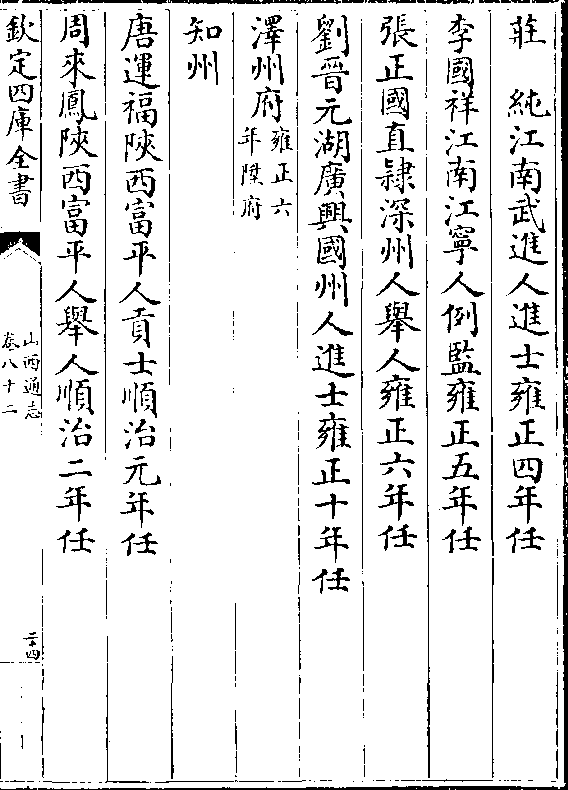 莊　純江南武進人進士雍正四年任
李國祥江南江寧人例監雍正五年任
張正國直隸深州人舉人雍正六年任
劉晉元湖廣興國州人進士雍正十年任
澤州府雍正六年陞府
知州
唐運福陝西富平人貢士順治元年任
周來鳳陝西富平人舉人順治二年任
欽定四庫全書
山西通志
卷八十二
二十四